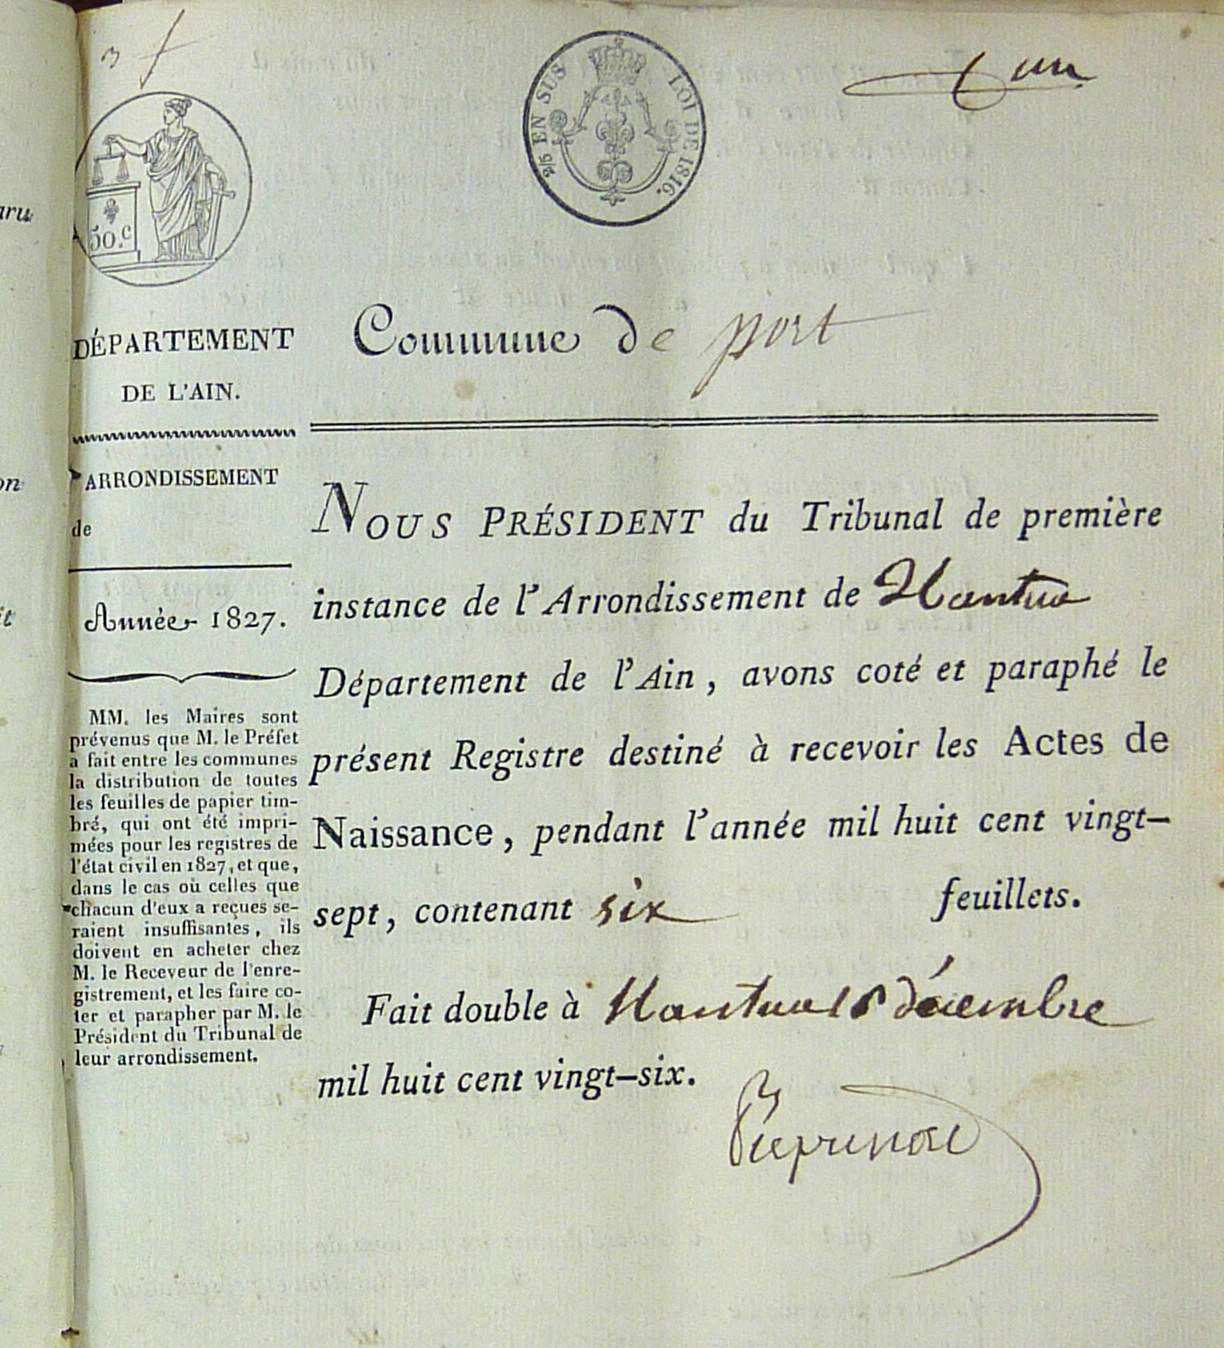 3
un
2/5 EN SUS
LOI DE 1816.
50.c
DÉPARTEMENT
DE L'AIN.
ARRONDISSEMENT
de
Année 1827.
MM. les Maires sont
prévenus que M. le Préfet
a fait entre les communes
la distribution de toutes
les feuilles de papier tim-
bré, qui ont été impri-
mées pour les registres de
l'état civil en 1827, et que,
dans le cas où celles que
chacun d'eux a reçues se-
raient insuffisantes, ils
doivent en acheter chez
M. le Receveur de l'enre-
gistrement, et les faire co-
ter et parapher par M. le
Président du Tribunal de
leur arrondissement.
Commune de port
NOUS PRÉSIDENT du Tribunal de première
instance de l'Arrondissement de Nantua
Département de l'Ain, avons coté et paraphé le
présent Registre destiné à recevoir les Actes de
Naissance, pendant l'année mil huit cent vingt-
sept, contenant six feuillets.
Fait double à Nantua décembre
mil huit cent vingt-six.